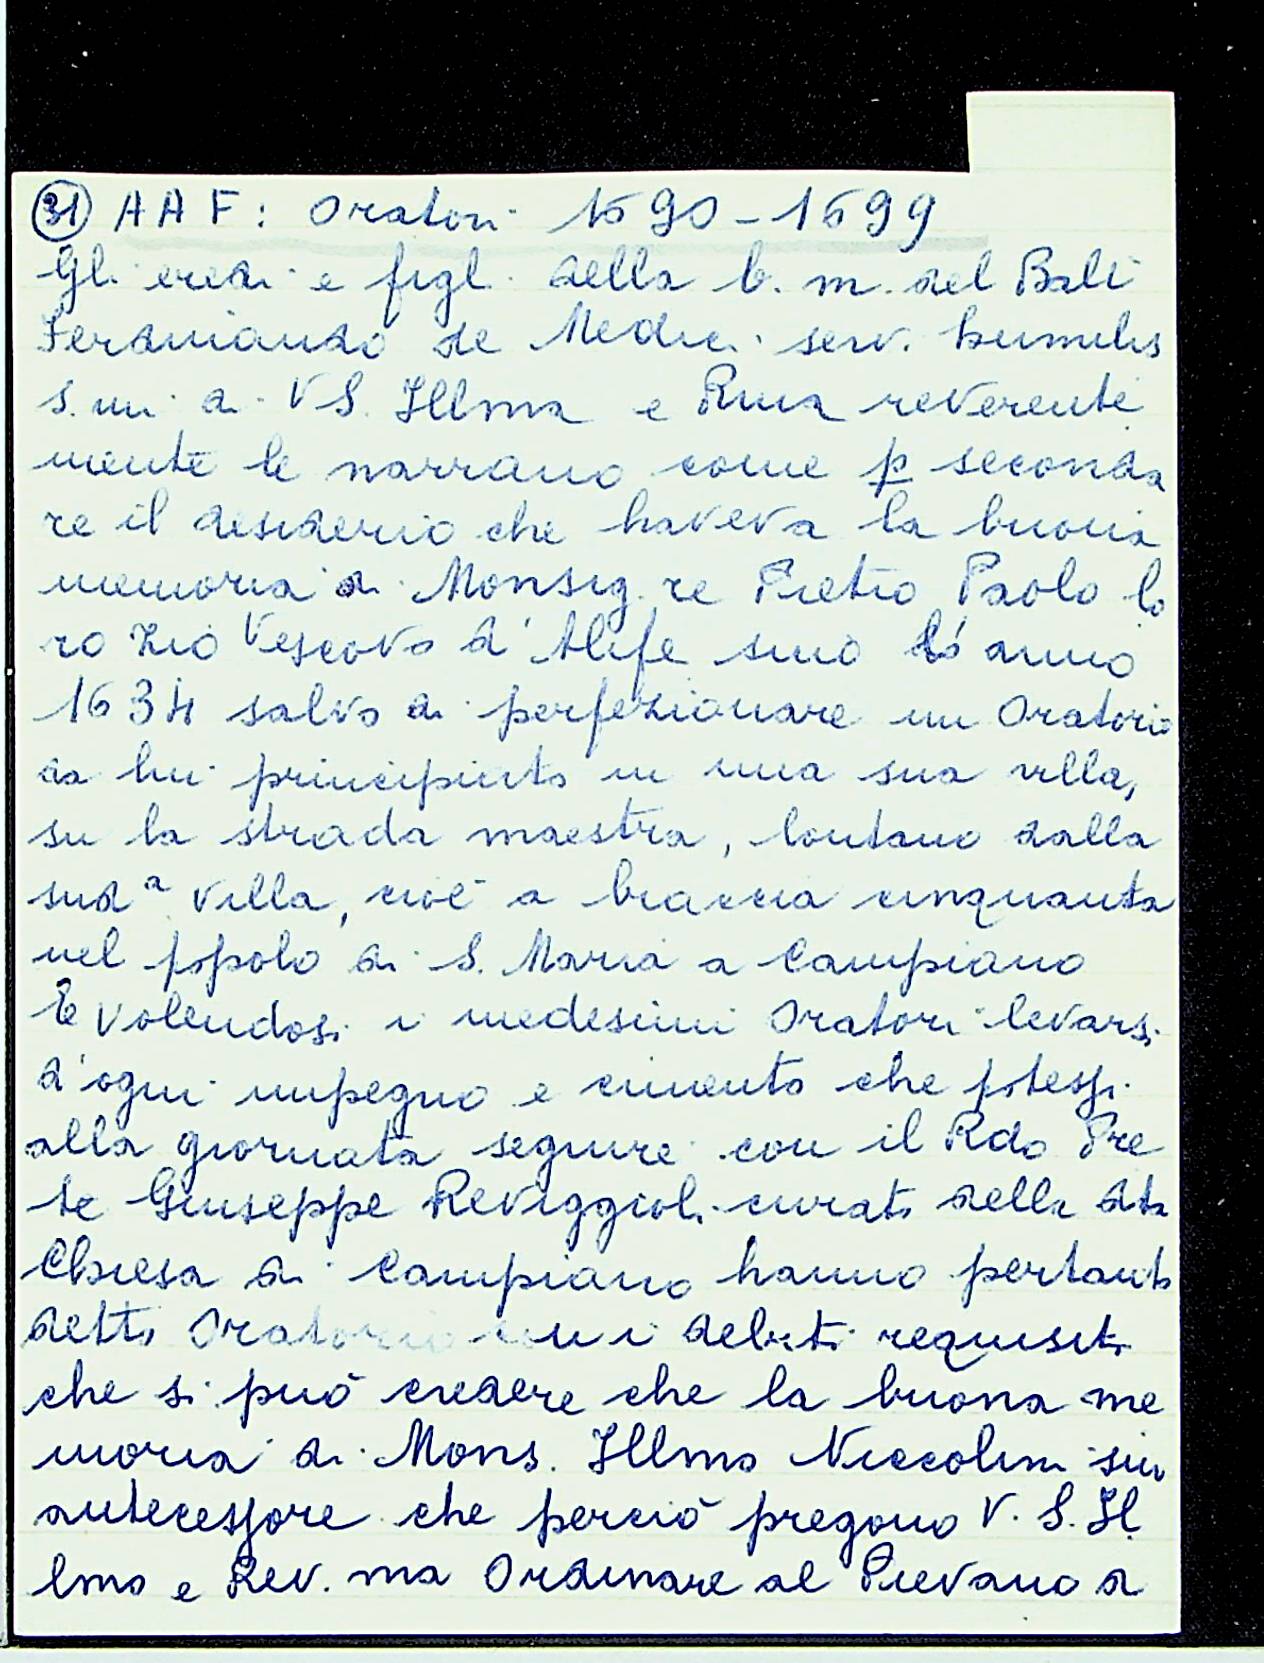 31 AAF: Oratori 1690-1699
Gli eredi e figli della b. m. del Balì
Ferdinando de Medici serv. humilis
s.mi di VS. Illma e Rma reverente
mente le narrano come p seconda
re il desiderio che haveva la buona
memoria di Monsig.re Pietro Paolo lo
ro zio Vescovo d'Alife sino l'anno
1634 salvo di perfezionare un Oratorio
da lui principiato in una sua villa,
su la strada maestra, lontano dalla
sudª villa, cioè a braccia cinquanta
nel popolo di S. Maria a Campiano
E volendosi i medesimi Oratori levarsi
d'ogni impegno e cimento che potessi
alla giornata seguire con il Rdo Pre
te Giuseppe Reviggioli curato della dta
Chiesa di Campiano hanno pertanto
detto Oratorio con i debiti requisiti
che si può credere che la buona me
moria di Mons. Illmo Niccolini suo
antecessore che perciò pregono V. S. Il
lma e Rev.ma Ordinare al Pievano di